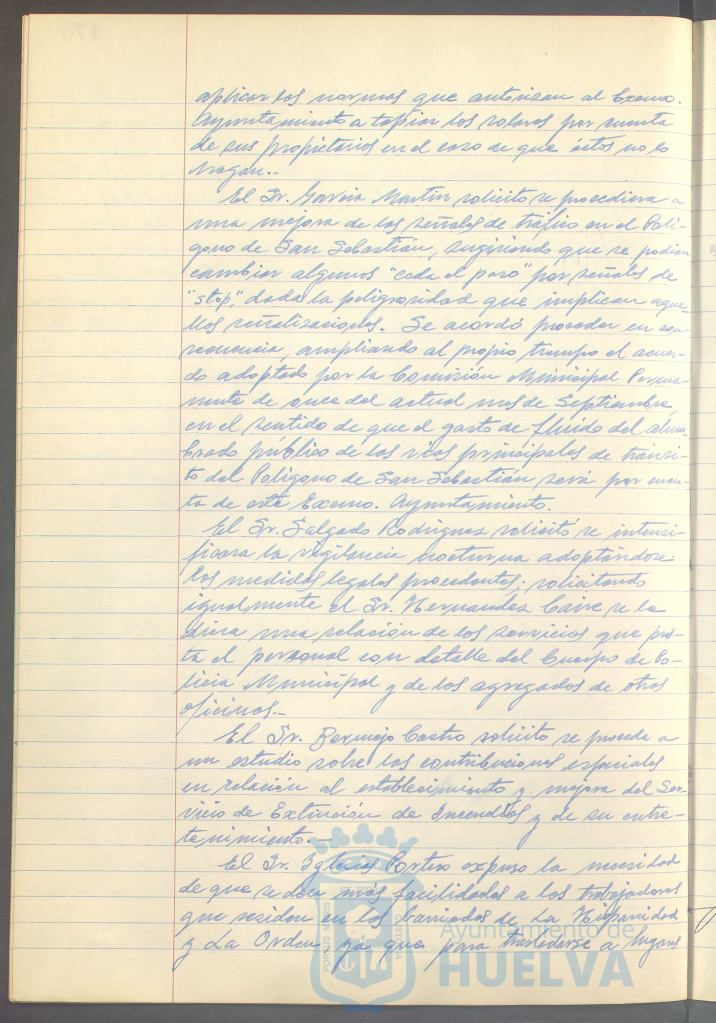 aplicar las normas que autorizan al Excmo.
Ayuntamiento a tapiar los solares por cuenta
de sus propietarios en el caso de que éstos no lo
hagan.-
El Sr. García Martín solicitó se procediera a
una mejora de las señales de tráfico en el Polí-
gono de San Sebastián, sugiriendo que se podían
cambiar algunos "ceda el paso" por señales de
"stop", dada la peligrosidad que implican aque-
llas señalizaciones. Se acordó proceder en con-
secuencia, ampliando al propio tiempo el acuer-
do adoptado por la Comisión Municipal Perma-
nente de once del actual mes de Septiembre
en el sentido de que el gasto de fluido del alum-
brado público de las vías principales de tránsi-
to del Polígono de San Sebastián será por cuen-
ta de este Excmo. Ayuntamiento.
El Sr. Salgado Rodríguez solicitó se intensi-
ficara la vigilancia nocturna adoptándose
las medidas legales procedentes; solicitando
igualmente el Sr. Hernández Caire se le
diera una relación de los servicios que pres-
ta el personal con detalle del Cuerpo de Po-
licía Municipal y de los agregados de otras
oficinas.-
El Sr. Bermejo Castro solicitó se proceda a
un estudio sobre las contribuciones especiales
en relación al establecimiento y mejora del Ser-
vicio de Extinción de Incendios y de su entre-
tenimiento.-
El Sr. Iglesias Portero expuso la necesidad
de que se den más facilidades a los trabajadores
que residen en las barriadas de La Hispanidad
y La Orden, ya que para trasladarse a lugares
Ayuntamiento de
HUELVA